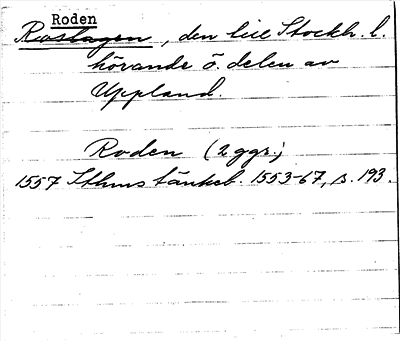 Roden
Roslagen, den till Stockh. l.
hörande ö. delen av
Uppland.
Roden (2 ggr.;
1557 Sthms tänkeb. 1553-67, s. 193.